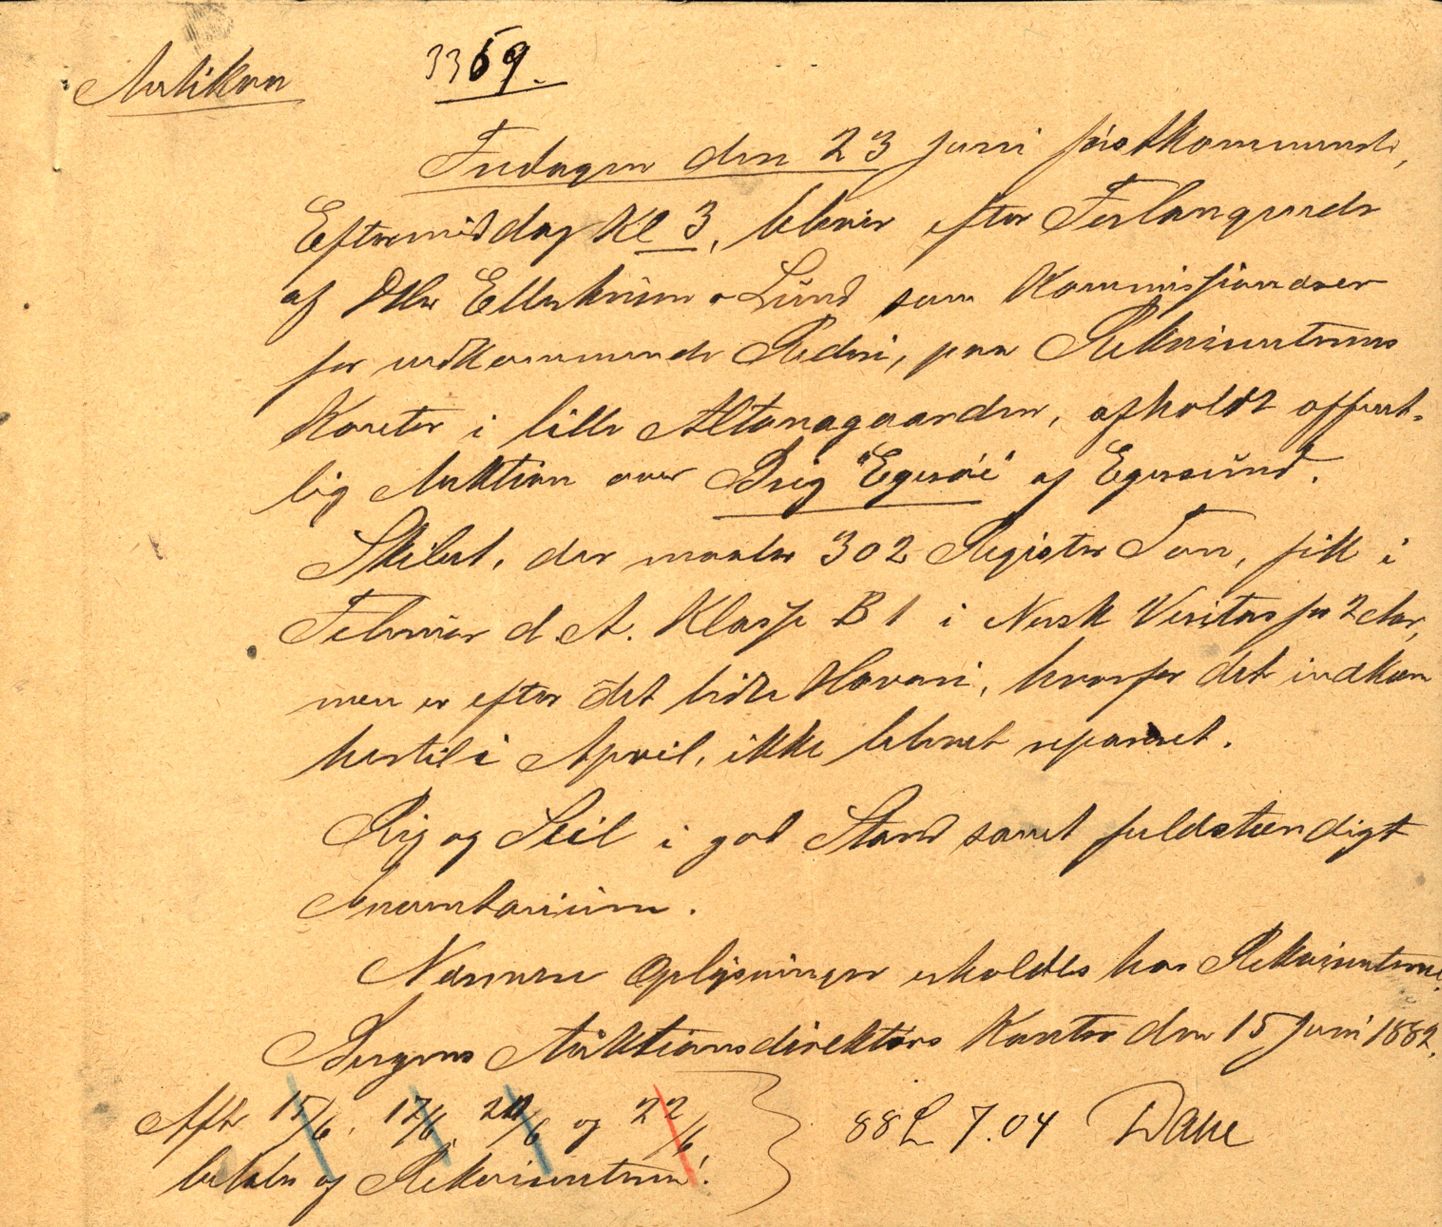 Auktion 3369.
Fredagen den 23 Juni førstkommende,
Eftermiddag Kl 3, bliver efter Forlangende
af DHrr Ellerhusen & Lund som Kommissionærer
for vedkommende Rederi, paa Rekvirenternes
Kontor i lille Altonagaarden, afholdt offent-
lig Auktion over Brig "Egerøe" af Egersund.
Skibet, der maaler 302 Register Tons, fik i
Februar d. A. Klasse B 1 i Norsk Veritas for 2 Aar,
men er efter det lidte Havari, hvorfor det indkom
hertil i April, ikke blevet repareret.
Rig og Seil i god Stand samt fuldstændigt
Inventarium.
Nærmere Oplysninger erholdes hos Rekvirenterne.
Bergens Auktionsdirektørs Kontor den 15 Juni 1882.
Aft. 15/6, 17/6, 20/6 og 22/6
betales af Rekvirenterne!
88 L 7.04